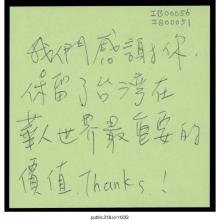 IB00056
IB00051
我們感謝你.
保留了台湾在
華人世界最重要的
價值. Thanks.!
public.318.io/11233